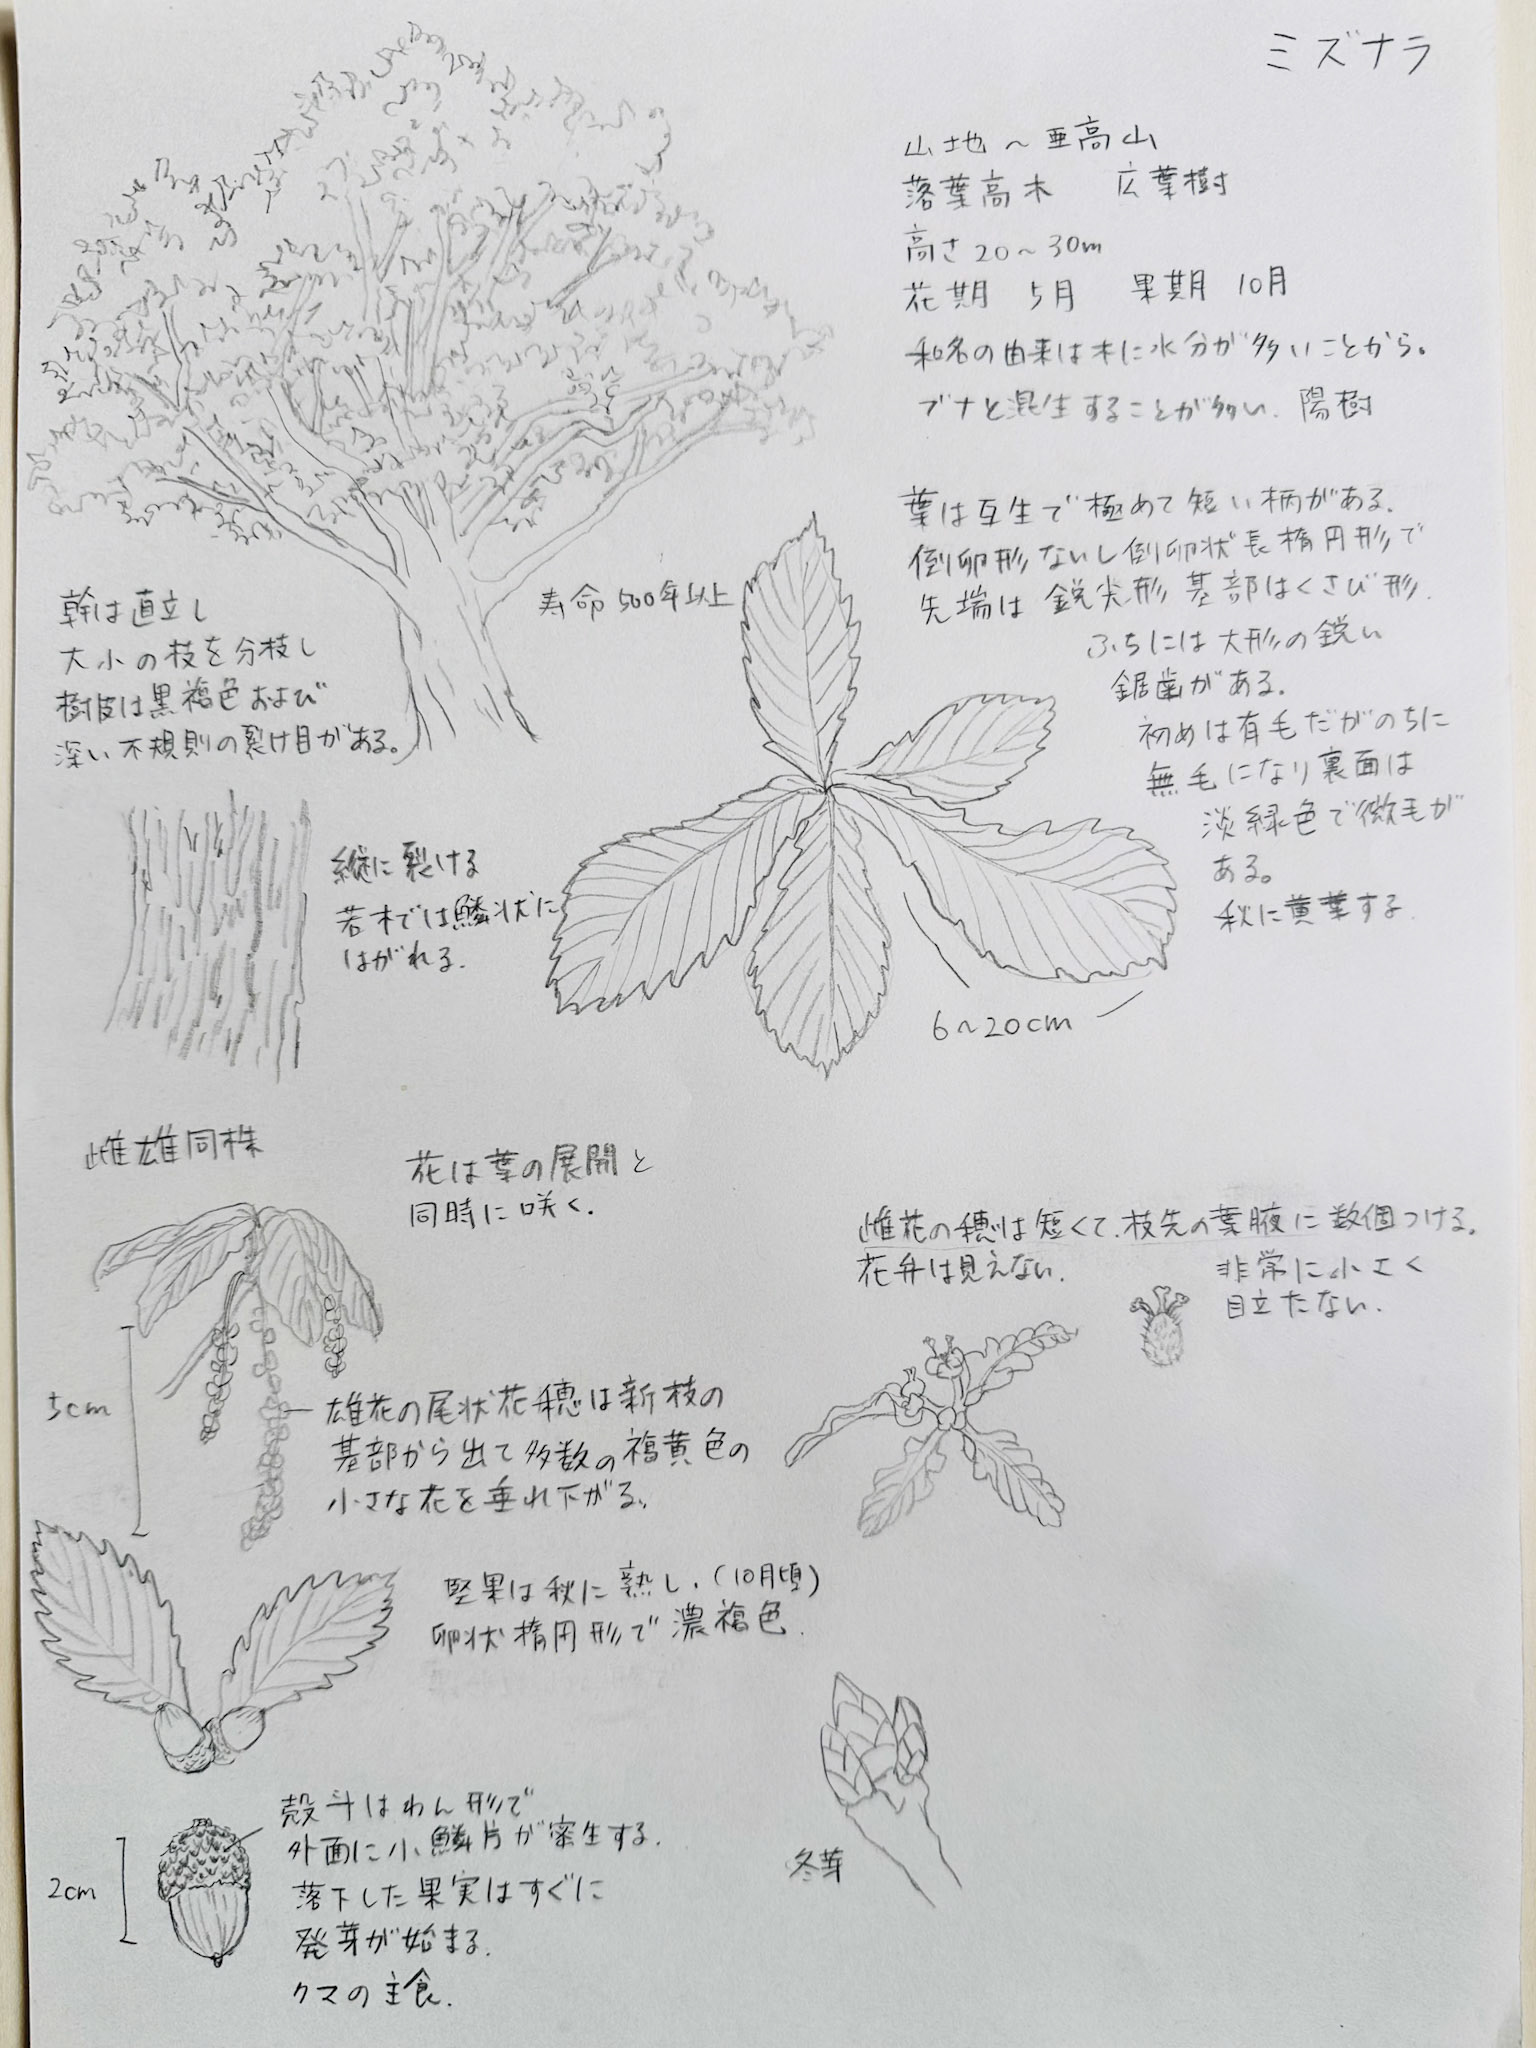 ミズナラ
山地〜亜高山
落葉高木 広葉樹
高さ20〜30m
花期 5月 果期 10月
和名の由来は木に水分が多いことから。
ブナと混生することが多い、陽樹
葉は互生で極めて短い柄がある。
倒卵形ないし倒卵状長楕円形で
先端は 鋭尖形 基部はくさび形.
ふちには大形の鋭い
鋸歯がある。
初めは有毛だがのちに
無毛になり裏面は
淡緑色で微毛が
ある。
秋に黄葉する.
寿命500年以上
幹は直立し
大小の枝を分枝し
樹皮は黒褐色および
深い不規則の裂け目がある。
縦に裂ける
若木では鱗状に
はがれる.
6〜20cm
雌雄同株
花は葉の展開と
同時に咲く.
雌花の穂は短くて、枝先の葉腋に数個つける。
花弁は見えない.
非常に小さく
目立たない.
5cm
雄花の尾状花穂は新枝の
基部から出て多数の褐黄色の
小さな花を垂れ下がる。
堅果は秋に熟し、(10月頃)
卵状楕円形で濃褐色.
殻斗はわん形で
外面に小鱗片が密生する.
2cm
落下した果実はすぐに
発芽が始まる.
クマの主食.
冬芽